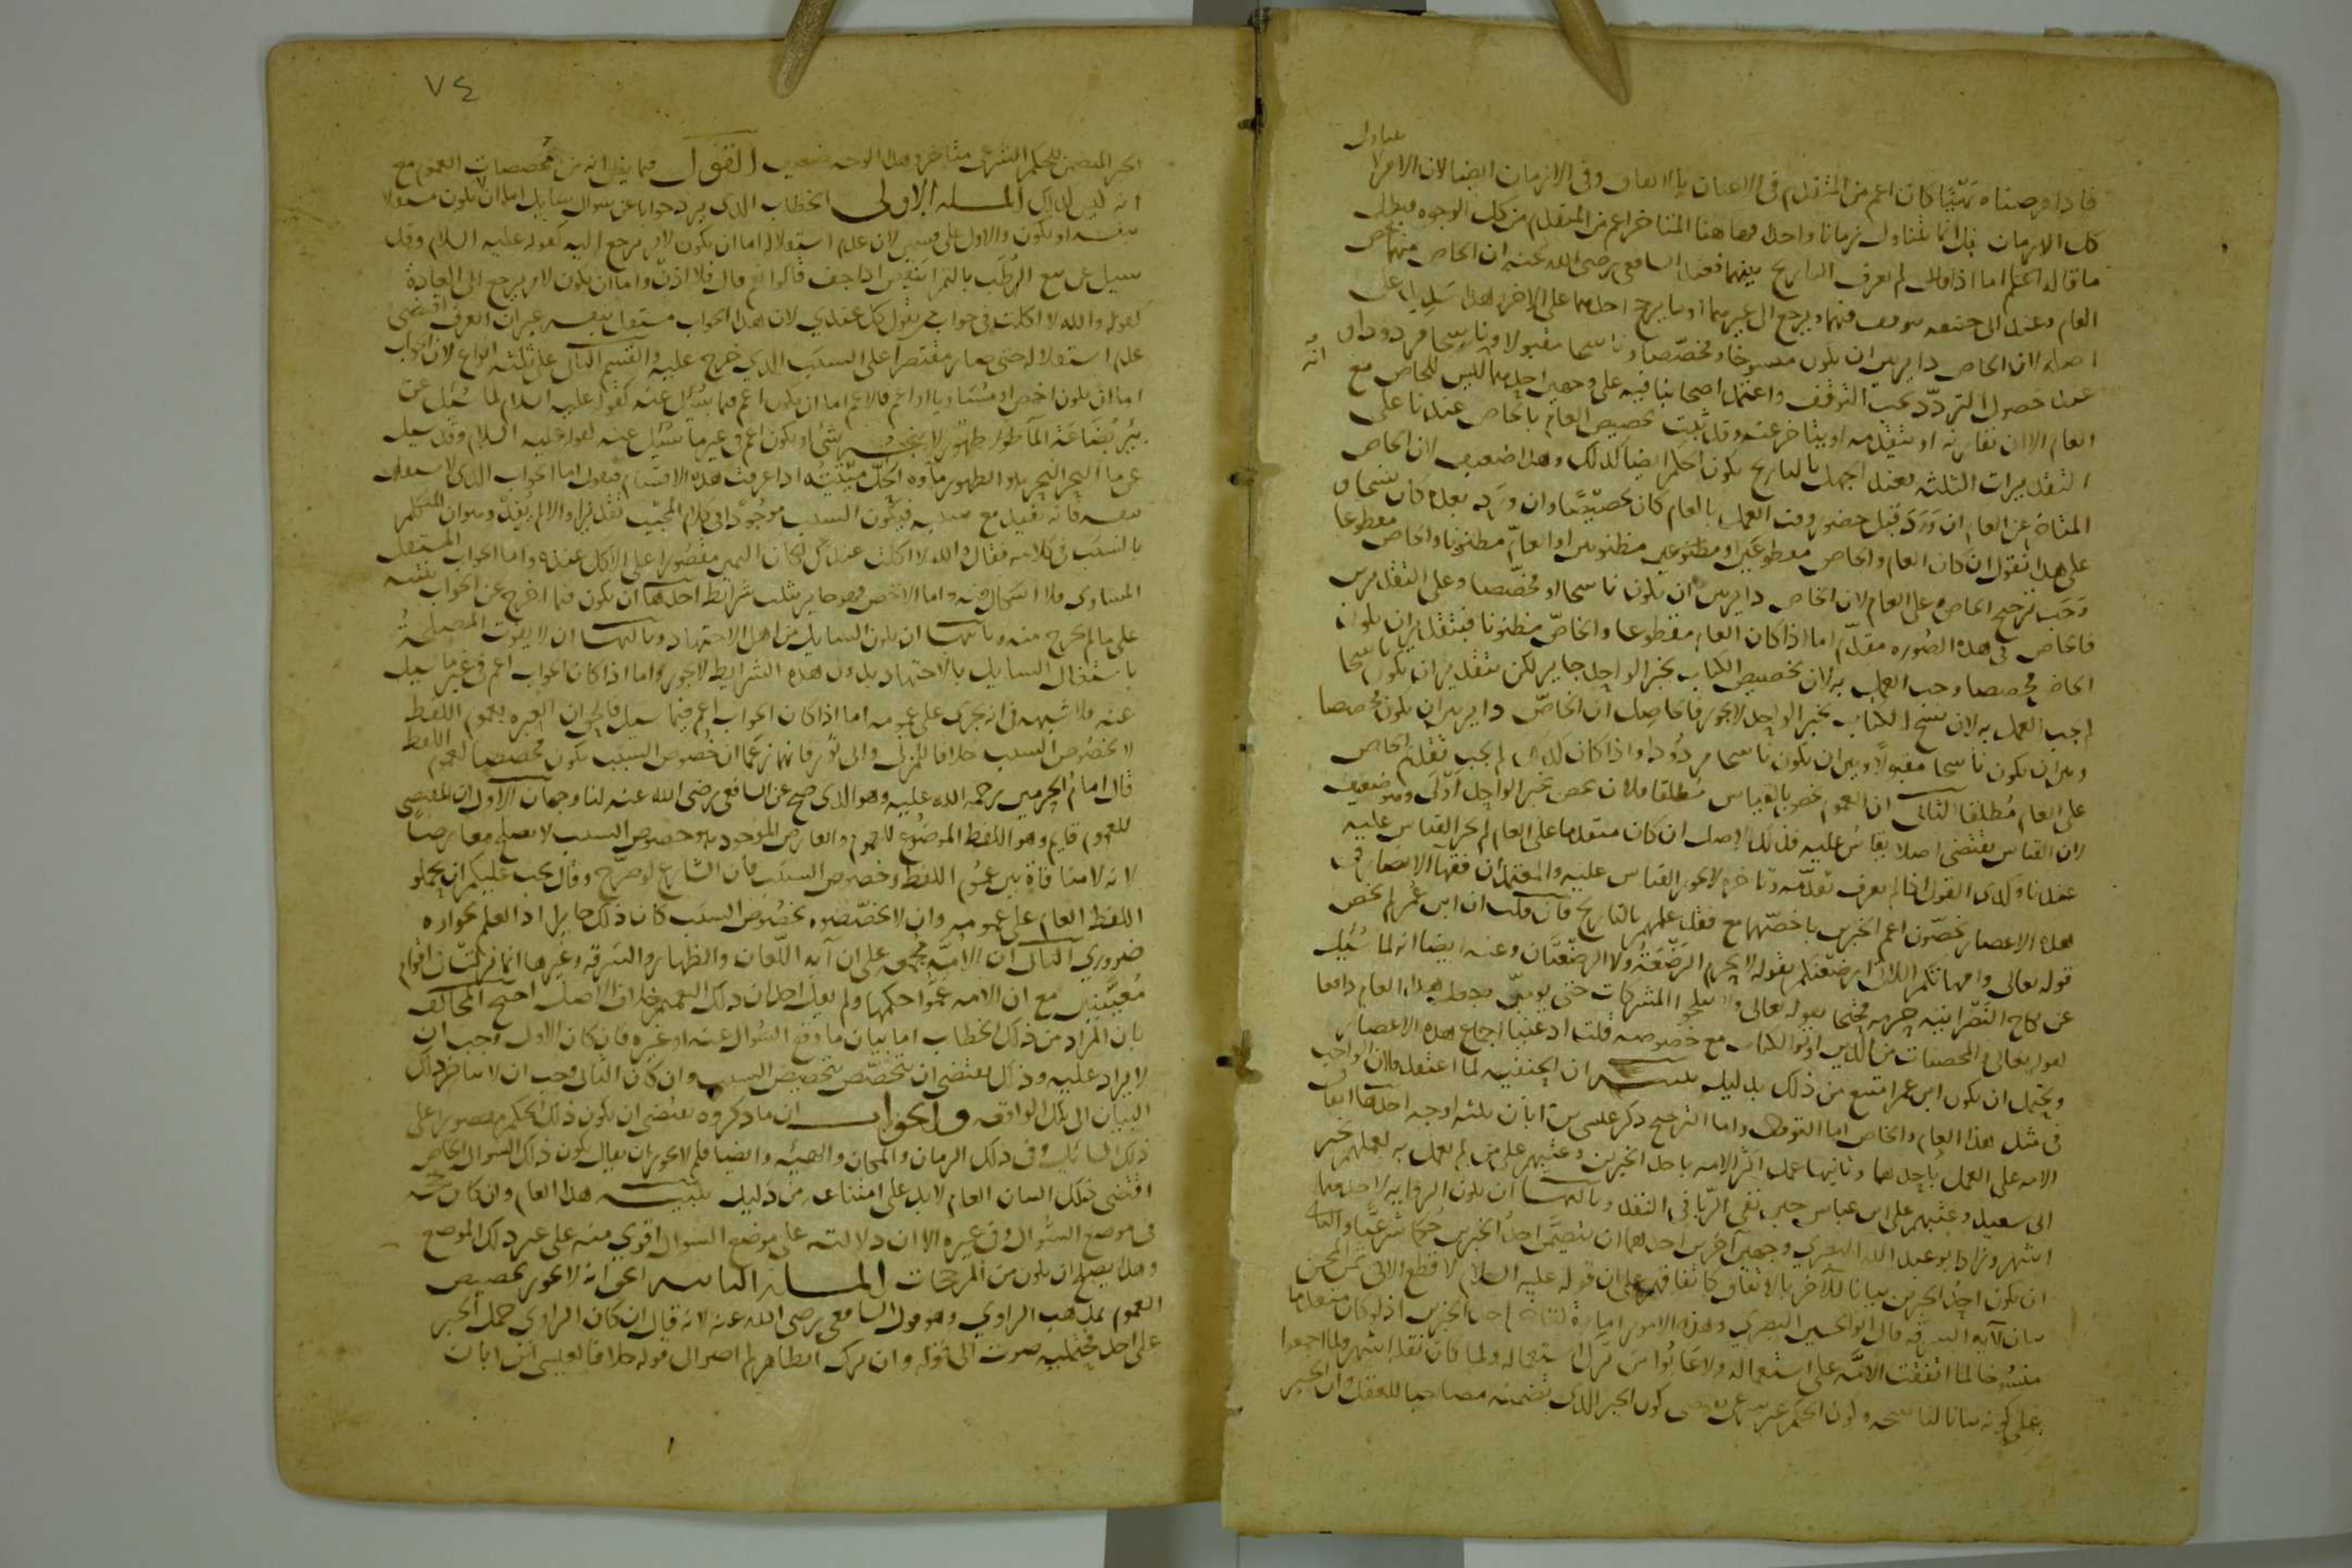 يتناول
فاذا فرضناه نهيا كان اعم من المتقدم في الاعيان بالاتفاق وفي الازمان ايضا لان الامر لا
كل الازمان بل انما يتناول زمانا واحدا فهاهنا المتاخر اعم من المتقدم من كل الوجوه فبطل
ما قاله الخصم اما اذا لم يعرف التاريخ بينهما فعند الشافعي رضي الله عنه ان الخاص منهما يخص
العام وعند ابي حنيفه يتوقف فيهما ويرجع الى غيرهما او ما يرجح احدهما على الاخر وهذا سديد على
اصله لان الخاص داير بين ان يكون منسوخا ومخصصا وناسخا مقبولا وناسخا مردودا وانه
عند حصول التردد يجب التوقف واعتمد اصحابنا فيه على وجهين احدهما ليس للخاص مع
العام الا ان يقارنه او يتقدمه او يتاخر عنه وقد ثبت تخصيص العام بالخاص عندنا على
التقديرات الثلثه فعند الجهل بالتاريخ يكون الحكم ايضا كذلك وهذا ضعيف لان الخاص
المتاخر عن العام ان ورد قبل حضور وقت العمل بالعام كان تخصيصا وان ورد بعده كان نسخا و
على هذا نقول ان كان العام والخاص مقطوعين او مظنونين او العام مظنونا والخاص مقطوعا
وجب ترجيح الخاص على العام لان الخاص داير بين ان يكون ناسخا او مخصصا وعلى التقديرين
فالخاص في هذه الصوره مقدم اما اذا كان العام مقطوعا والخاص مظنونا فبتقدير ان يكون
الخاص مخصصا وجب العمل به لان تخصيص الكتاب بخبر الواحد جايز لكن بتقدير ان يكون ناسخا
لم يجب العمل به لان نسخ الكتاب بخبر الواحد لا يجوز فالحاصل ان الخاص داير بين ان يكون مخصصا
وبين ان يكون ناسخا مقبولا وبين ان يكون ناسخا مردودا واذا كان كذلك لم يجب تقديم الخاص
على العام مطلقا الثاني ان العموم يخص بالقياس مطلقا فلان يخص بخبر الواحد اولى وهو ضعيف
لان القياس يقتضي اصلا يقاس عليه فذلك الاصل ان كان متقدما على العام لم يجز القياس عليه
عندنا وكذى القول اذا لم يعرف تقدمه وتاخره لا يجوز القياس عليه والمعتمد ان فقهآ الامصار في
هذه الاعصار يخصون اعم الخبرين باخصهما مع فقد علمهم بالتاريخ فان قلت ان ابن عمر لم يخص
قوله تعالى وامهاتكم اللاتي ارضعنكم بقوله لا تحرم الرضعة ولا الرضعتان وعنه ايضا انه لما سئل
عن نكاح النصرانيه حرمه محتجا بقوله تعالى ولا تنكحوا المشركات حتى يومن وجعل هذا العام دافعا
لقوله تعالى والمحصنات من الذين اوتوا الكتاب مع خصوصه قلت ادعينا اجماع هذه الاعصار
ويحتمل ان يكون ابن عمر امتنع من ذلك بدليل تنبيه ان الحنفيه لما اعتقدوا ان الواجب
في مثل هذا العام والخاص اما التوقف واما الترجيح ذكر عيسى بن ابان ثلثه اوجه احدها اتفاق
الامه على العمل باحدهما وثانيها عمل اكثر الامه باحد الخبرين وعيبهم على من لم يعمل به لعملهم بخبر
ابي سعيد وعيبهم على ابن عباس حين نفى الربا في النقد وثالثها ان يكون الروايه لاحدهما
اشهر وزاد ابو عبد الله البصري وجهين آخرين احدهما ان يتضمن احد الخبرين حكما شرعيا والثاني
ان يكون احد الخبرين بيانا للآخر بالاتفاق كاتفاقهم على ان قوله عليه السلام لا قطع الا في ثمن المجن
بيان لآيه السرقه قال ابو الحسين البصري وهذه الامور امارة لتاخر احد الخبرين اذ لو كان متقدما
منسوخا لما اتفقت الامه على استعماله ولا عابوا من ترك استعماله ولما كان نقله اشهر ولما اجمعوا
على كونه بيانا لناسخه وكون الحكم غير شرعي يقتضي كون الخبر الذي يتضمنه مصاحبا للعقل وان الخبر
٧٤
الخبر المتضمن للحكم الشرعي متاخر وهذا الوجه ضعيف القول فيما يظن انه من مخصصات العموم مع
انه ليس كذلك المسله الاولى الخطاب الذي يرد جوابا عن سوال سايل اما ان لا يكون مستقلا
بنفسه او يكون والاول على قسمين لان عدم استقلاله اما ان يكون لامر يرجع اليه كقوله عليه السلام وقد
سيل عن بيع الرطب بالتمر اينقص اذا جف قالوا نعم قال فلا اذن واما ان يكون لامر يرجع الى العادة
كقوله والله لا اكلت في جواب من يقول كل عندي لان هذا الجواب مستقل بنفسه غير ان العرف اقتضى
عدم استقلاله حتى صار مقتصرا على السبب الذي خرج عليه والقسم الثاني على ثلثه انواع لان الجواب
اما ان يكون اخص او مساويا او اعم فالاعم اما ان يكون اعم فيما سئل عنه كقوله عليه السلام لما سئل عن
بئر بضاعة المآ طهور لا ينجسه شئ او يكون اعم في غير ما سئل عنه كقوله عليه السلام وقد سيل
عن مآ البحر هو الطهور ماؤه الحل ميتته اذا عرفت هذه الاقسام فنقول اما الجواب الذي لا يستقل
بنفسه فانه يفيد مع سببه فيكون السبب موجودا في كلام المجيب تقديرا والا لم يفد وهو ان المتكلم
بالسبب في كلامه فقال والله لا اكلت عندك لكان اليمين مقصورا على الاكل عنده واما الجواب المستقل
المساوي فلا اشكال فيه واما الاخص فهو جايز بثلث شرايط احدها ان يكون فيما اخرج عن الجواب تنبيه
على ما لم يخرج منه وثانيها ان يكون السايل من اهل الاجتهاد وثالثها ان لا يفوت المصلحة
باشتغال السايل بالاجتهاد بدون هذه الشرايط لا يجوز واما اذا كان الجواب اعم في غير ما سيل
عنه فلا شبهه في انه يجري على عمومه اما اذا كان الجواب اعم فيما سيل فالحق ان العبره بعموم اللفظ
لا بخصوص السبب خلافا للمزني وابي ثور فانهما زعما ان خصوص السبب يكون مخصصا لعموم اللفظ
قال امام الحرمين رحمة الله عليه وهو الذي صح عن الشافعي رضي الله عنه لنا وجهان الاول ان المقتضي
للعموم قايم وهو اللفظ الموضوع للعموم والعارض الموجود وهو خصوص السبب لا يصلح معارضا
لانه لا منافاة بين عموم اللفظ وخصوص السبب فان الشارع لو صرح وقال يجب عليكم ان تحملوا
اللفظ العام على عمومه وان لا تخصصوه بخصوص السبب كان ذلك جايزا اذ العلم بجوازه
ضروري الثاني ان الامة مجمعه على ان آيه اللعان والظهار والسرقه وغيرها انما نزلت في اقوام
معينين مع ان الامه عموا حكمها ولم يقل احد ان ذلك التعميم خلاف الاصل احتج المخالف
بان المراد من ذلك الخطاب اما بيان ما وقع السوال عنه او غيره فان كان الاول وجب ان
لا يزاد عليه وذلك يقتضي ان يتخصص بتخصيص السبب وان كان الثاني وجب ان لا يتاخر ذلك
البيان الى تلك الواقعه والجواب ان ما ذكروه يقتضي ان يكون ذلك الحكم مقصورا على
ذلك السائل وفي ذلك الزمان والمكان والهيئه وايضا فلم لا يجوز ان يقال يكون ذلك السوال الخاص
اقتضى ذلك البيان العام لا بد على امتناعه من دليل تنبيه هذا العام وان كان حجة
في موضع السؤال وفي غيره الا ان دلالته على موضع السوال اقوي منه على غير ذلك الموضع
وهذا يصلح ان يكون من المرجحات المسله الثانيه الحق انه لا يجوز تخصيص
العموم بمذهب الراوي وهو قول الشافعي رضي الله عنه لانه قال ان كان الراوي حمل الخبر
على احد محتمليه صرت الى قوله وان ترك الظاهر لم اصر الى قوله خلافا لعيسى ابن ابان